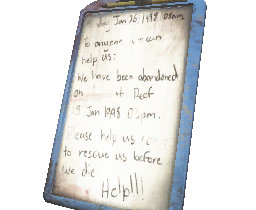 day Jan 26, 1998 08am
To anyone can
help us:
We have been abandoned
on Reef
Jan 1998 03pm.
please help us
to rescue us before
we die.
Help!!!